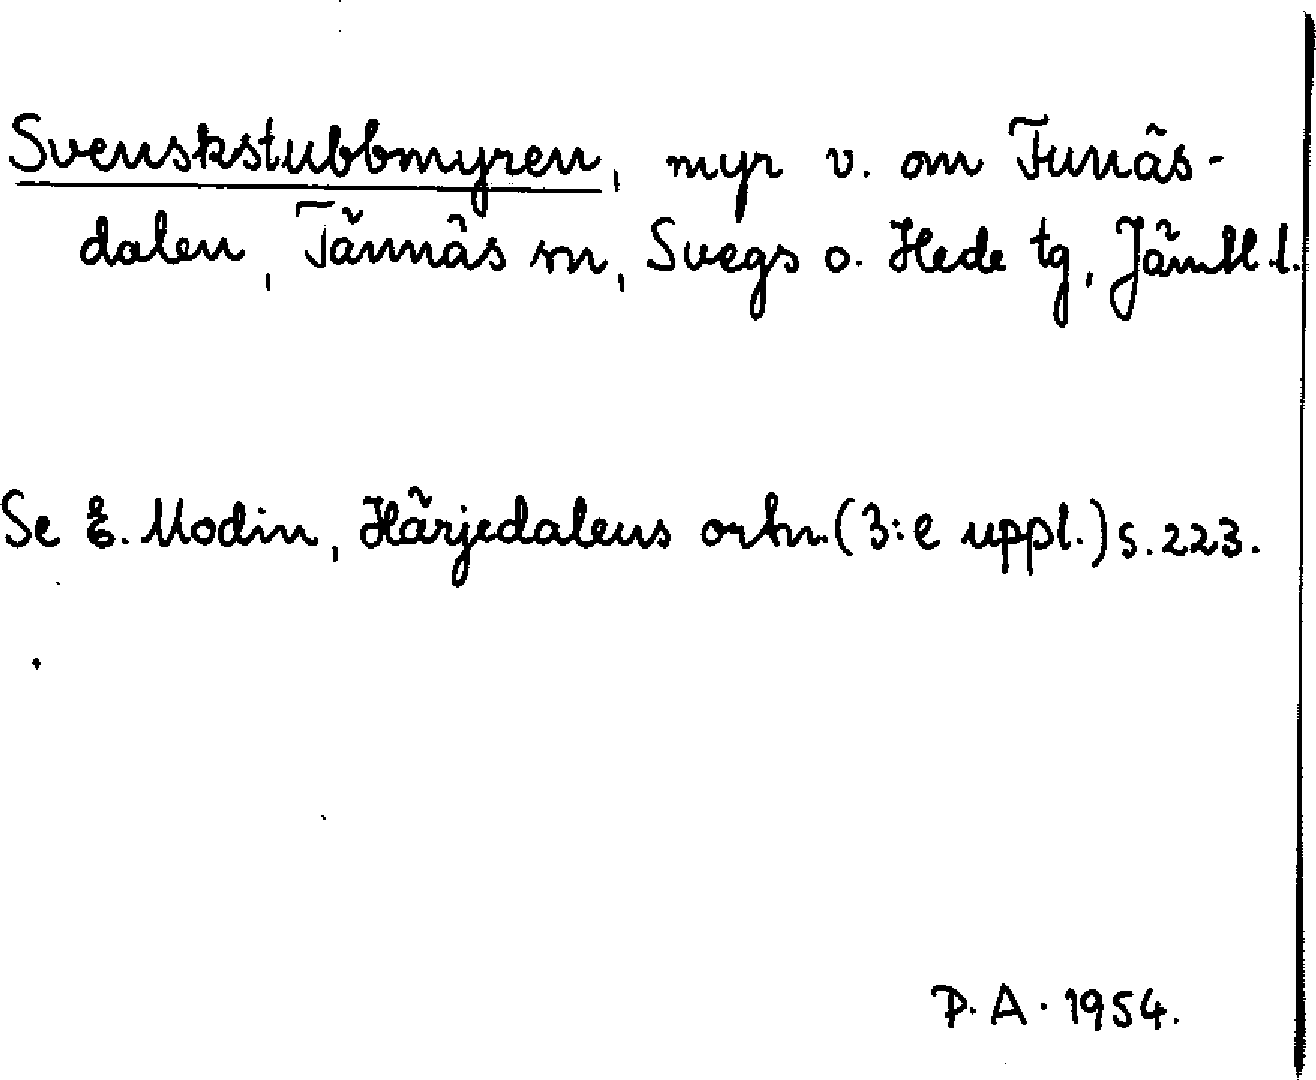 Svenskstubbmyren, myr v. om Funäs-
dalen, Tännäs sn, Svegs o. Hede tg, Jämtl. l.
Se E. Modin, Härjedalens ortn. (3:e uppl.) s. 223.
P. A. 1954.